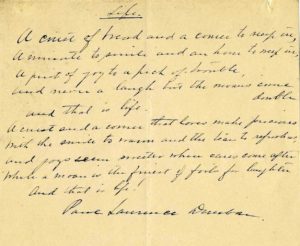 Life.
A crust of bread and a corner to sleep in,
A minute to smile and an hour to weep in,
A pint of joy to a peck of trouble,
and never a laugh but the moans come
double
and that is life.
A crust and a corner that love makes precious
With the smile to warm and the tear to refresh us,
and joys seem sweeter when cares come after
While a moan is the finest of foils for laughter
And that is life!
Paul Laurence Dunbar.